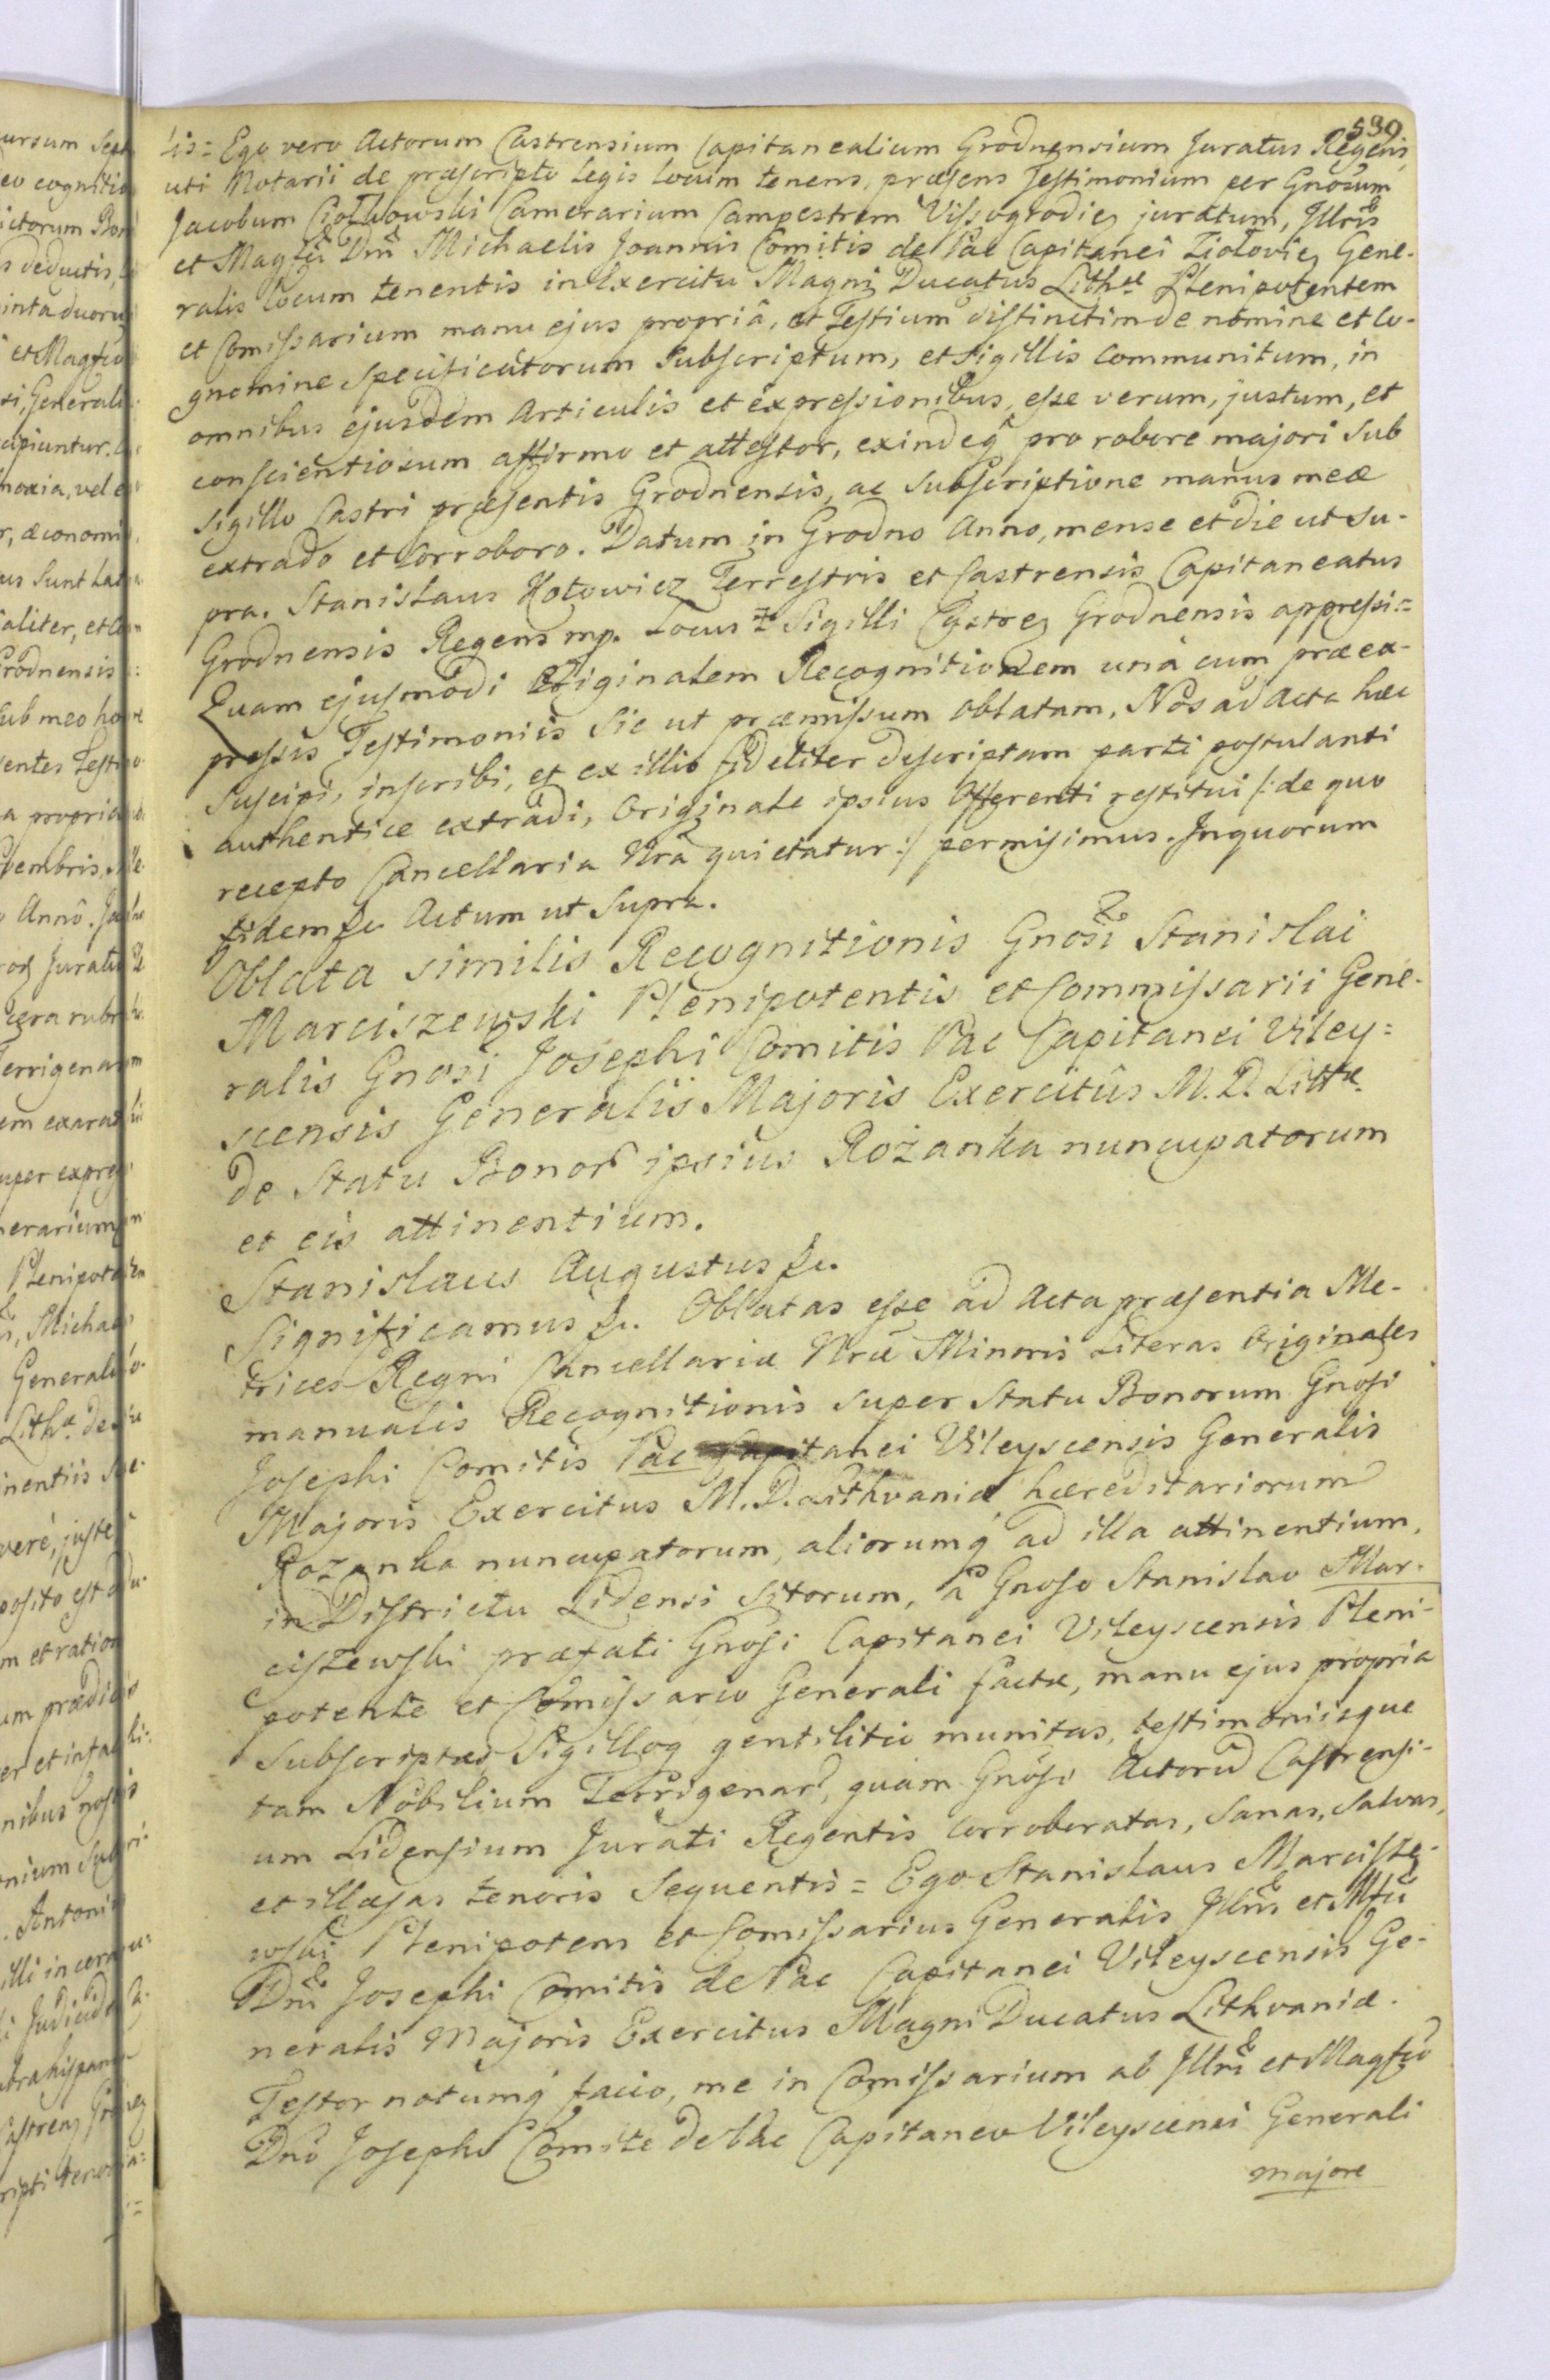 539
lis = Ego vero Actorum Castrensium Capitanealium Grodnensium Juratus Regens,
uti Notarii de præscripto Legis locum tenens, præsens Testimonium per Gnosum
Jacobum Ciołkowski Camerarium Campestrem Vissogrodieñ juratum, Illris
et Magfci Dni Michaelis Joannis Comitis de Pac Capitanei Ziołovieñ Gene-
ralis locum tenentis in Exercitu Magni Ducatus Lithæ Plenipotentem
et Comissarium manu ejus propriâ, et Testium distinctim de nomine et co-
gnomine specificatorum subscriptum, et sigillis communitum, in
omnibus ejusdem Articulis et expressionibus, esse verum, justum, et
conscientiosum affirmo et attestor, exindeq pro robore majori sub
sigillo Castri præsentis Grodnensis, ac subscriptione manus meæ
extrado et corroboro. Datum in Grodno Anno, mense et die ut su-
pra. Stanislaus Hołowicz Terrestris et Castrensis Capitaneatus
Grodnensis Regens mp. Locus Sigilli Castreñ Grodnensis appressi =
Quam ejusmodi Originalem Recognitionem unà cum præex-
pressis Testimoniis sic ut præmissum oblatam, Nos ad Acta hæc
suscipi, inscribi, et ex illis fideliter descriptam parti postulanti
authentice extradi, Originale ipsius Offerenti restitui /: de quo
recepto Cancellaria Nra quietatur :/ permisimus. In quorum
fidem &c. Actum ut supra.
Oblata similis Recognitionis Gnosi Stanislai
Marciszewski Plenipotentis et Commissarii Gene-
ralis Gnosi Josephi Comitis Pac Capitanei Viley=
scensis Generalis Majoris Exercitûs M. D. Litthæ
de Statu Bonor ipsius Rożanka nuncupatorum
et eis attinentium.
Stanislaus Augustus &c.
Significamus &c. Oblatas esse ad Acta præsentia Me-
trices Regni Cancellariæ Nræ Minoris Literas Originales
manualis Recognitionis super Statu Bonorum Gnosi
Josephi Comitis Pac Capitanei Vileyscensis Generalis
Majoris Exercitus M. D. Lithvaniæ hæreditariorum
Rozanka nuncupatorum, aliorumq ad illa attinentium,
in Districtu Lidensi sitorum, a Gnoso Stanislao Mar-
ciszewski præfati Gnosi Capitanei Vileyscensis Pleni-
potente et Comissario Generali factæ, manu ejus propria
subscriptas, Sigilloq gentilitio munitas, testimoniisque
tam Nobilium Terrigenar, quam Gnosi Actorũ Castrensi-
um Lidensium Jurati Regentis corroboratas, sanas, salvas,
et illæsas tenoris sequentis = Ego Stanislaus Marcisze-
wski Plenipotens et Comissarius Generalis Illris et Mfci
Dni Josephi Comitis de Pac Capitanei Vileyscensis Ge-
neralis Majoris Exercitus Magni Ducatus Lithvaniæ.
Testor notumq facio, me in Comissarium ab Illri et Magfco
Dno Josepho Comite de Pac Capitaneo Vileyscensi Generali
majore